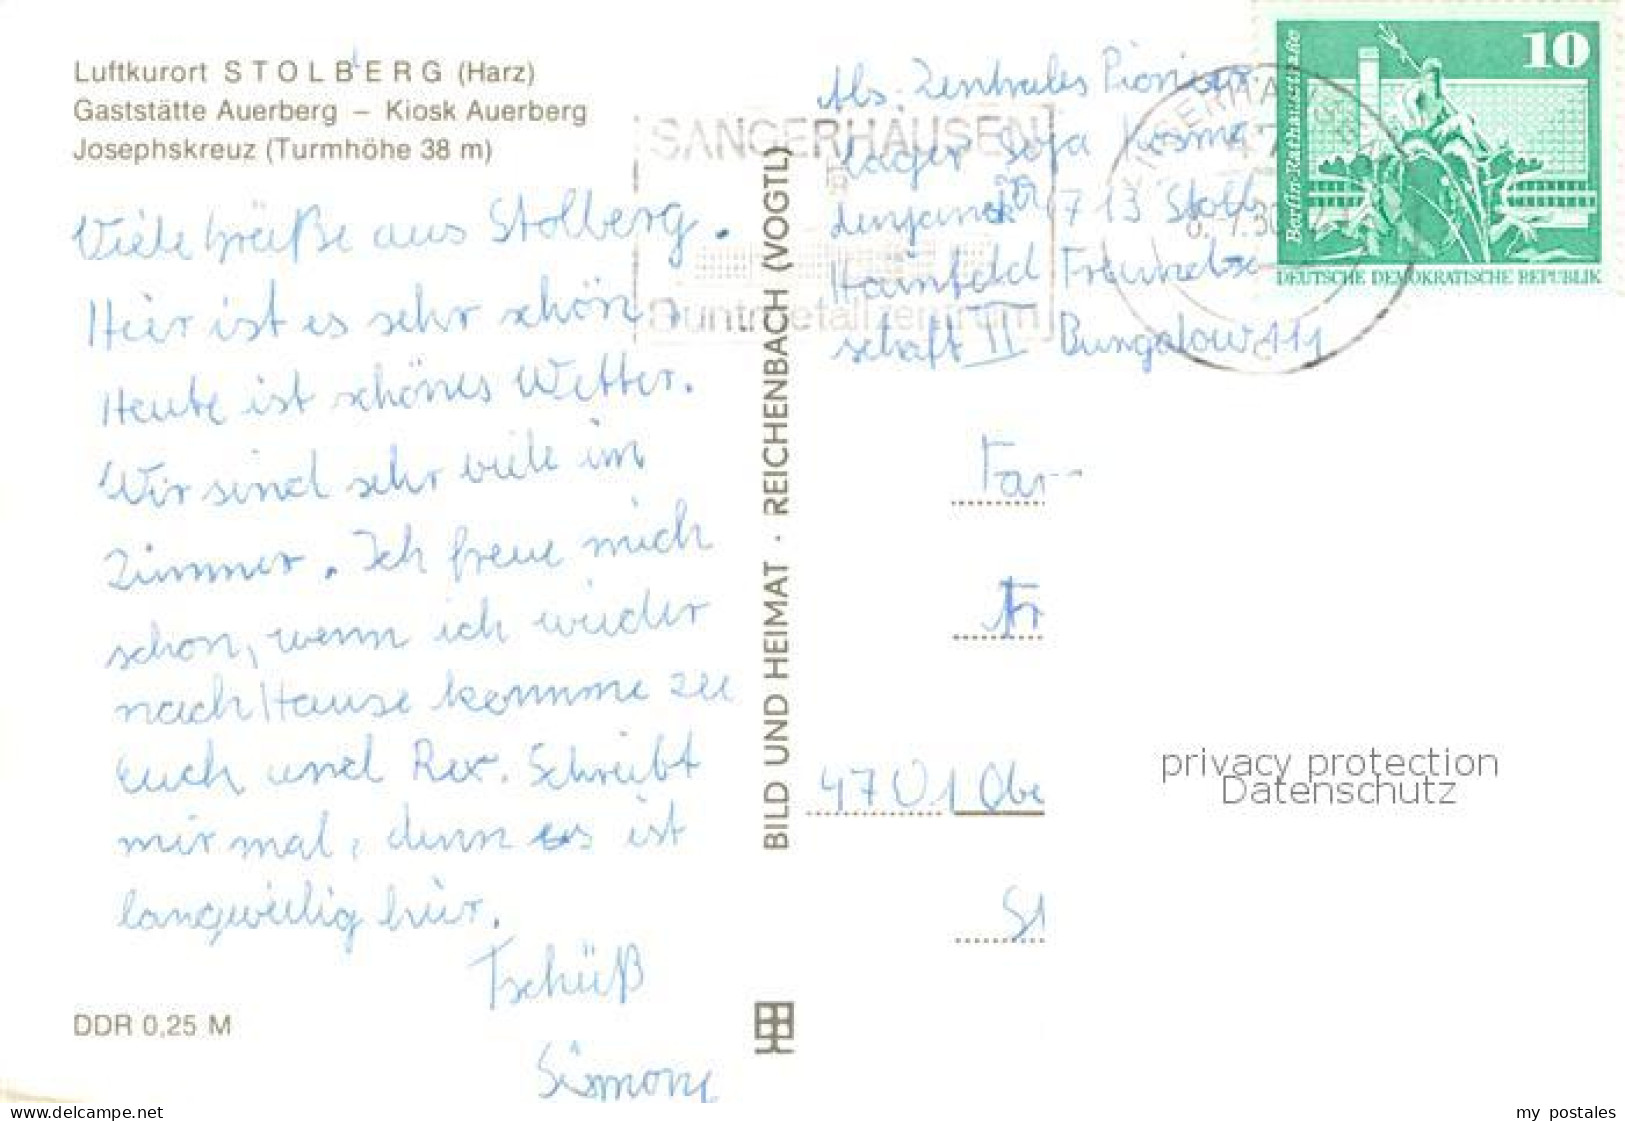 Luftkurort STOLBERG (Harz)
Gaststätte Auerberg – Kiosk Auerberg
Josephskreuz (Turmhöhe 38 m)
Viele Grüße aus Stolberg.
Hier ist es sehr schön.
Heute ist schönes Wetter.
Wir sind sehr viele im
Zimmer. Ich freue mich
schon, wenn ich wieder
nach Hause komme zu
euch und Rex. Schreibt
mir mal, denn es ist
langweilig hier.
Tschüß
Simone
DDR 0,25 M
BILD UND HEIMAT · REICHENBACH (VOGTL)
Abs. Zentrales Pionier
lager Soja Kosmo
demjanskaja 4713 Stolb
Hainfeld Freundsc
schaft II Bungalow 111
SANGERHAUSEN
Buntmetallzentrum
10
Berlin-Rathausstraße
DEUTSCHE DEMOKRATISCHE REPUBLIK
Fam
4701 Obe
privacy protection
Datenschutz
www.delcampe.net
my_postales